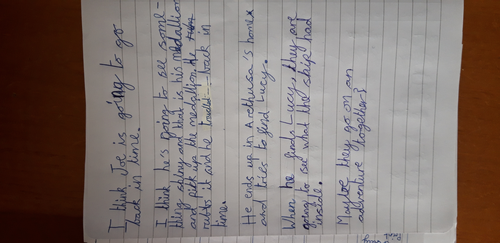 I think Joe is going to go
back in time.
I think he's going to see some-
thing shiny and that is his medallion
and pick up the medallion, he
rubbs it and he travel back in
time.
He ends up in Arethusa's home
and tries to find Lucy.
When he finds Lucy, they are
going to see what the ship had
inside.
Maybe they go on an
adventure together?